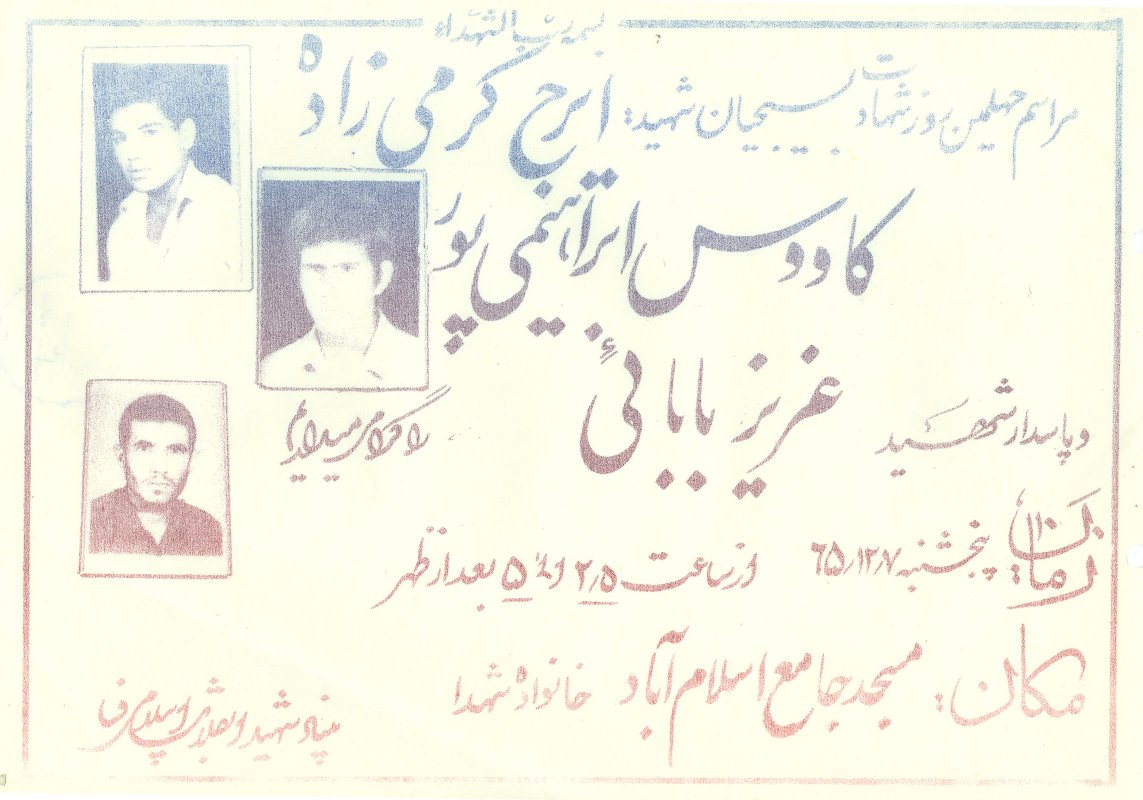 بسمه رب الشهداء
مراسم چهلمین روز شهادت بسیجیان شهید: ایرج کرمی زاده
کاووس ابراهیمی پور
و پاسدار شهید عزیز بابائی
را گرامی میداریم
زمان: پنجشنبه ۶۵٫۱۲٫۷ از ساعت ۲٫۵ الی ۵ بعد از ظهر
مکان: مسجد جامع اسلام آباد خانواده شهدا
بنیاد شهید انقلاب اسلامی